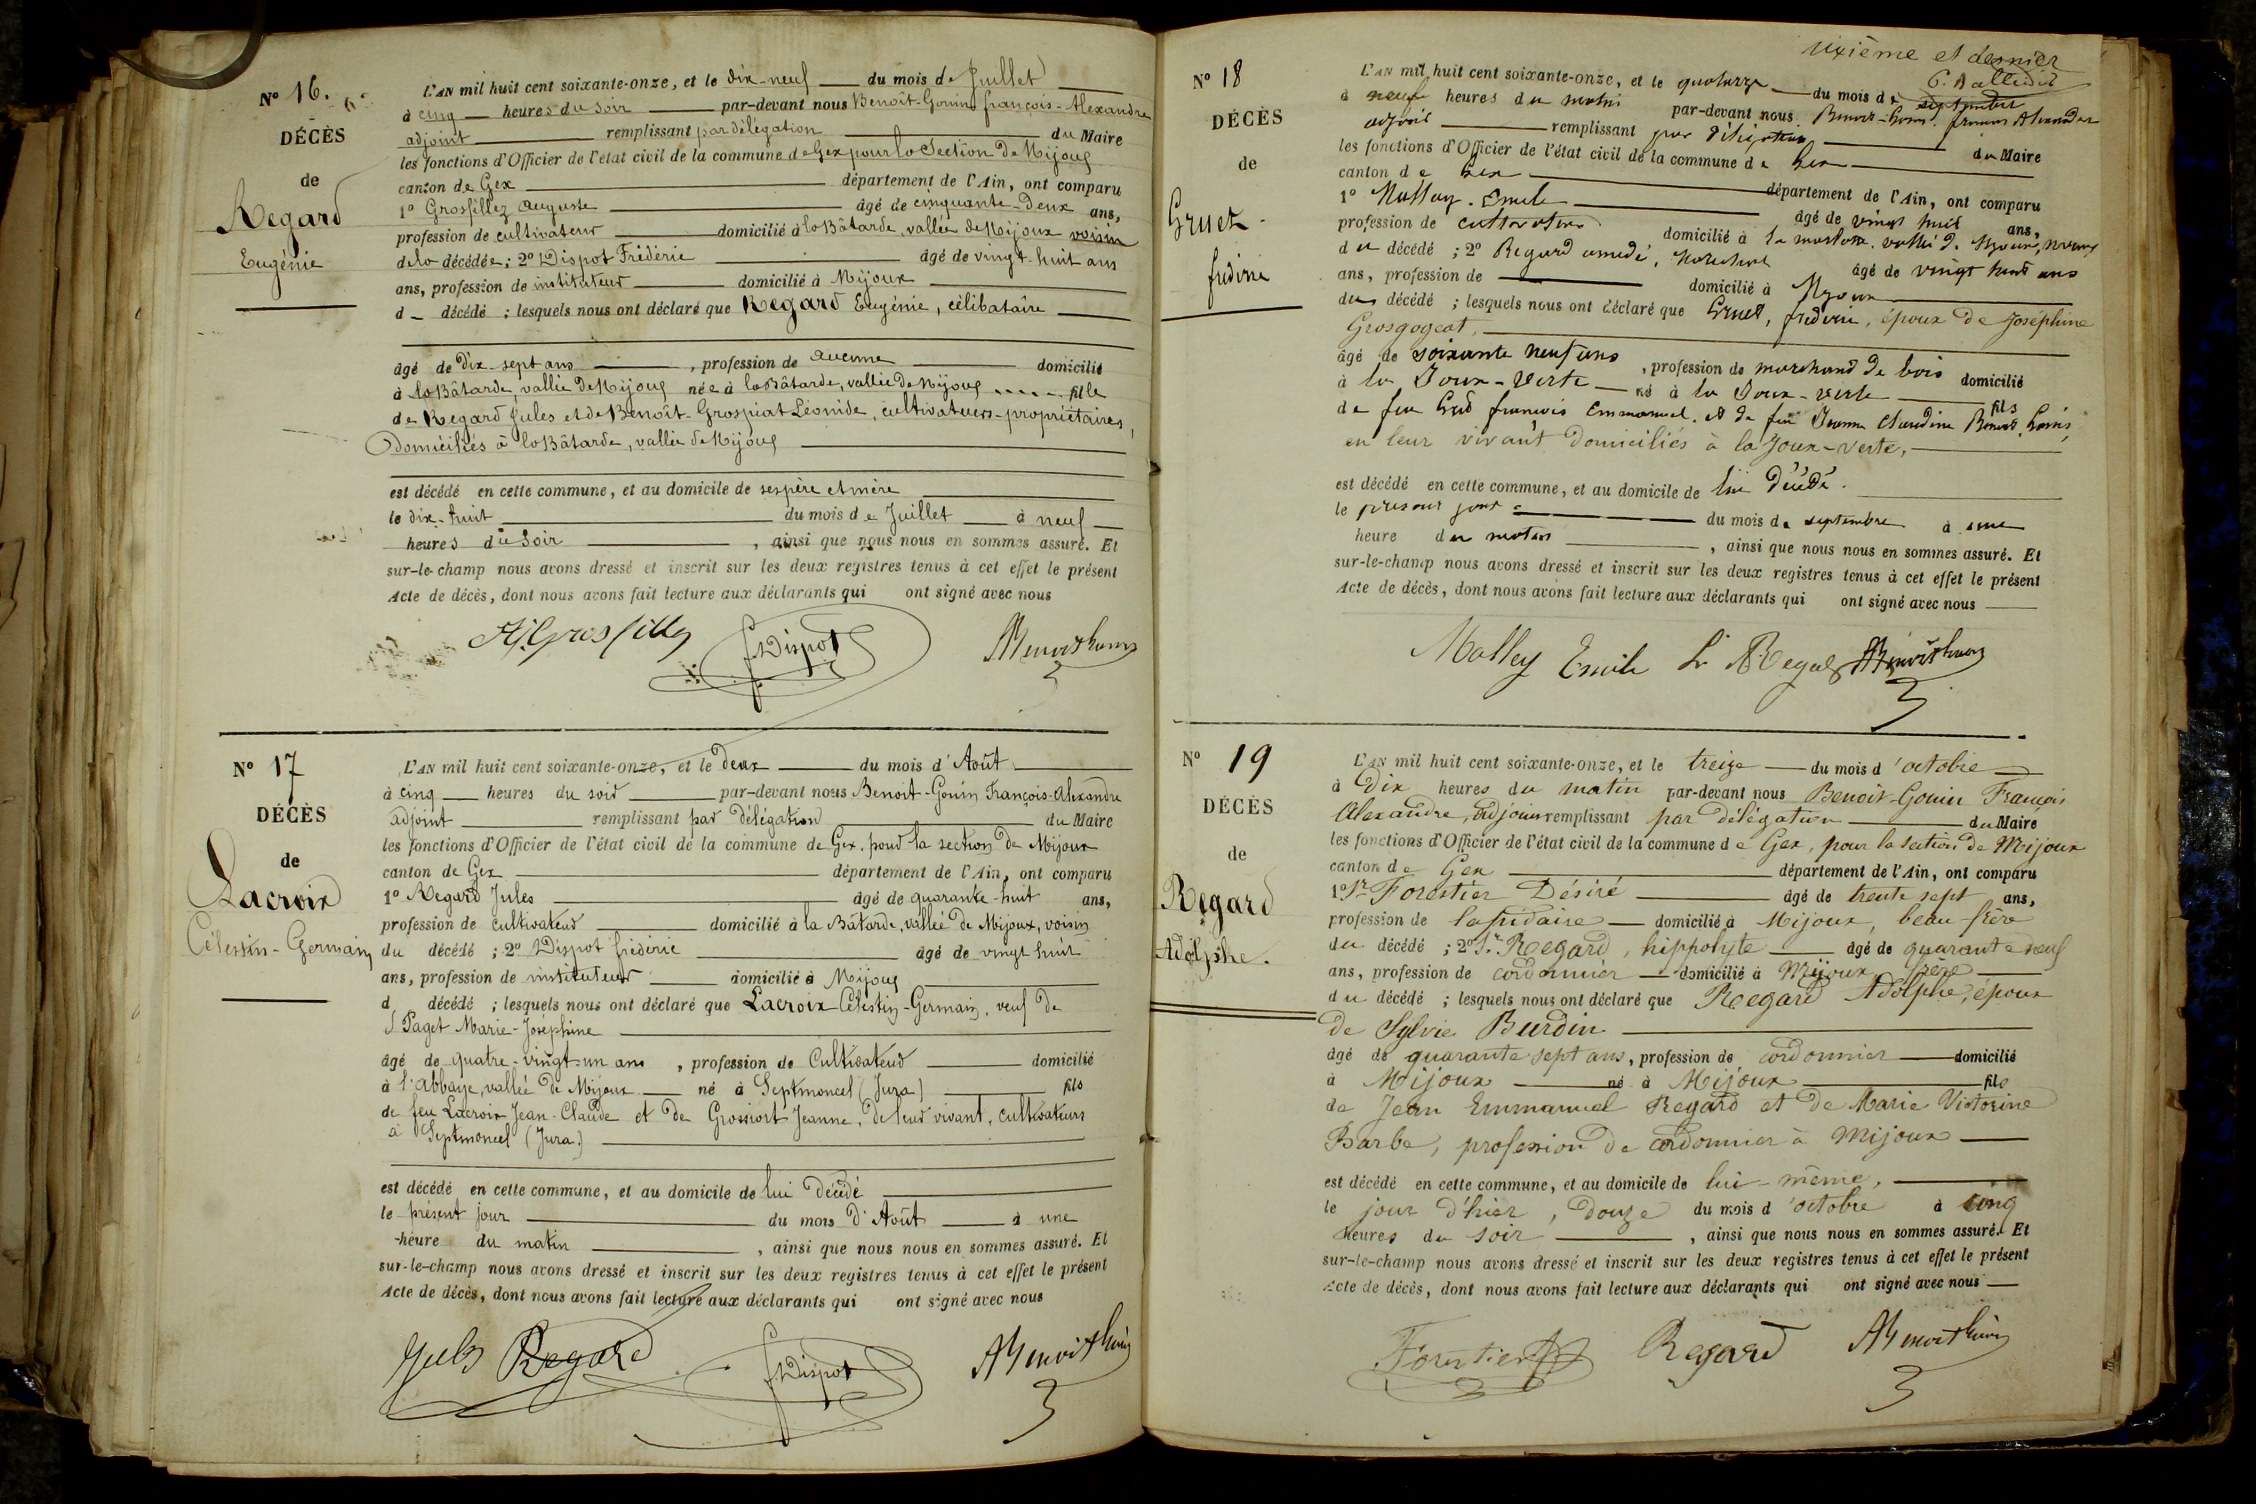 N° 16.
DÉCÈS
de
Regard
Eugénie
L'AN mil huit cent soixante-onze, et le dix-neuf du mois de Juillet
à cinq heures du soir par-devant nous Benoît-Gouin françois-Alexandre
adjoint remplissant par délégation du Maire
les fonctions d'Officier de l'état civil de la commune de Gex pour la Section de Mijoux
canton de Gex département de l'Ain, ont comparu
1° Grosfillez Auguste âgé de cinquante-deux ans,
profession de cultivateur domicilié à la Bâtarde, vallée de Mijoux voisin
de la décédée ; 2° Dispot Frédéric âgé de vingt-huit ans
ans, profession de instituteur domicilié à Mijoux
d décédé ; lesquels nous ont déclaré que Regard Eugénie, célibataire
âgé de dix-sept ans , profession de aucune domicilié
à la Bâtarde, vallée de Mijoux née à la Bâtarde, vallée de Mijoux fille
de Regard Jules et de Benoît-Grospiat Léonide, cultivateurs-propriétaires,
Domiciliés à la Bâtarde, vallée de Mijoux
est décédé en cette commune, et au domicile de ses père et mère
le dix-huit du mois de Juillet à neuf
heures du soir , ainsi que nous nous en sommes assuré. Et
sur-le-champ nous avons dressé et inscrit sur les deux registres tenus à cet effet le présent
Acte de décès, dont nous avons fait lecture aux déclarants qui ont signé avec nous
Dispot
N° 17
DÉCÈS
de
Lacroix
Célestin-Germain
L'AN mil huit cent soixante-onze, et le deux du mois d'Août
à cinq heures du soir par-devant nous Benoit-Gouin François-Alexandre
adjoint remplissant par délégation du Maire
les fonctions d'Officier de l'état civil de la commune de Gex, pour la section de Mijoux
canton de Gex département de l'Ain, ont comparu
1° Regard Jules âgé de quarante-huit ans,
profession de cultivateur domicilié à la Bâtarde, vallée de Mijoux, voisin
du décédé ; 2° Dispot frédéric âgé de vingt huit
ans, profession de instituteur domicilié à Mijoux
d décédé ; lesquels nous ont déclaré que Lacroix Célestin-Germain, veuf de
Paget Marie-Joséphine
âgé de quatre-vingt-un ans , profession de Cultivateur domicilié
à l'Abbaye, vallée de Mijoux né à Septmoncel (Jura) fils
de feu Lacroix Jean-Claude et de Grossiort Jeanne, de leur vivant, cultivateurs
à Septmoncel (Jura)
est décédé en cette commune, et au domicile de lui décédé
le présent jour du mois d'Août à une
heure du matin , ainsi que nous nous en sommes assuré. Et
sur-le-champ nous avons dressé et inscrit sur les deux registres tenus à cet effet le présent
Acte de décès, dont nous avons fait lecture aux déclarants qui ont signé avec nous
Jules Regard Dispot
et dernier
N° 18
DÉCÈS
de
Gruet
frédéric
L'AN mil huit cent soixante-onze, et le quatorze du mois de septembre
à neuf heures du matin par-devant nous Benoit-Gouin françois Alexandre
adjoint remplissant par délégation du Maire
les fonctions d'Officier de l'état civil de la commune de Gex
canton de Gex département de l'Ain, ont comparu
1° Mallay Emile âgé de vingt huit ans,
profession de cultivateur domicilié à vallée de Mijoux
du décédé ; 2° Regard amedé, âgé de vingt huit ans
ans, profession de domicilié à Mijoux
du décédé ; lesquels nous ont déclaré que Gruet, frederic, époux de Joséphine
Grosgogeat,
âgé de soixante neuf ans , profession de marchand de bois domicilié
à la Joux-verte né à la Joux-verte fils
de feu françois Emmanuel et de feu Jeanne claudine Benoit Gouin,
en leur vivant domiciliés à la Joux-verte,
est décédé en cette commune, et au domicile de lui décédé.
le présent jour du mois de septembre à une
heure du matin , ainsi que nous nous en sommes assuré. Et
sur-le-champ nous avons dressé et inscrit sur les deux registres tenus à cet effet le présent
Acte de décès, dont nous avons fait lecture aux déclarants qui ont signé avec nous
Malley Emile
N° 19
DÉCÈS
de
Regard
Adolphe.
L'AN mil huit cent soixante-onze, et le treize du mois d'octobre
à Dix heures du matin par-devant nous Benoît-Gouin François
Alexandre, adjoint remplissant par délégation du Maire
les fonctions d'Officier de l'état civil de la commune de Gex, pour la Section de Mijoux
canton de Gex département de l'Ain, ont comparu
1° Sr Forestier Désiré âgé de trente sept ans,
profession de lapidaire domicilié à Mijoux, beau-frère
du décédé ; 2° Sr Regard, hippolyte âgé de quarante neuf
ans, profession de cordonnier domicilié à Mijoux, frère
du décédé ; lesquels nous ont déclaré que Regard Adolphe, époux
de Sylvie Burdin
âgé de quarante sept ans, profession de cordonnier domicilié
à Mijoux né à Mijoux fils
de Jean Emmanuel Regard et de Marie Victorine
Barbe, profession de cordonnier à Mijoux
est décédé en cette commune, et au domicile de lui-même,
le jour d'hier, douze du mois d'octobre à cinq
heures du soir , ainsi que nous nous en sommes assuré. Et
sur-le-champ nous avons dressé et inscrit sur les deux registres tenus à cet effet le présent
Acte de décès, dont nous avons fait lecture aux déclarants qui ont signé avec nous
Forestier Regard